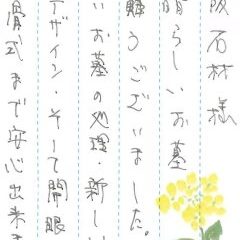 阪石材様
晴らしいお墓
難うございました。
いお墓の処理・新しい
デザイン・そして開眼
骨式まで安心出来ま